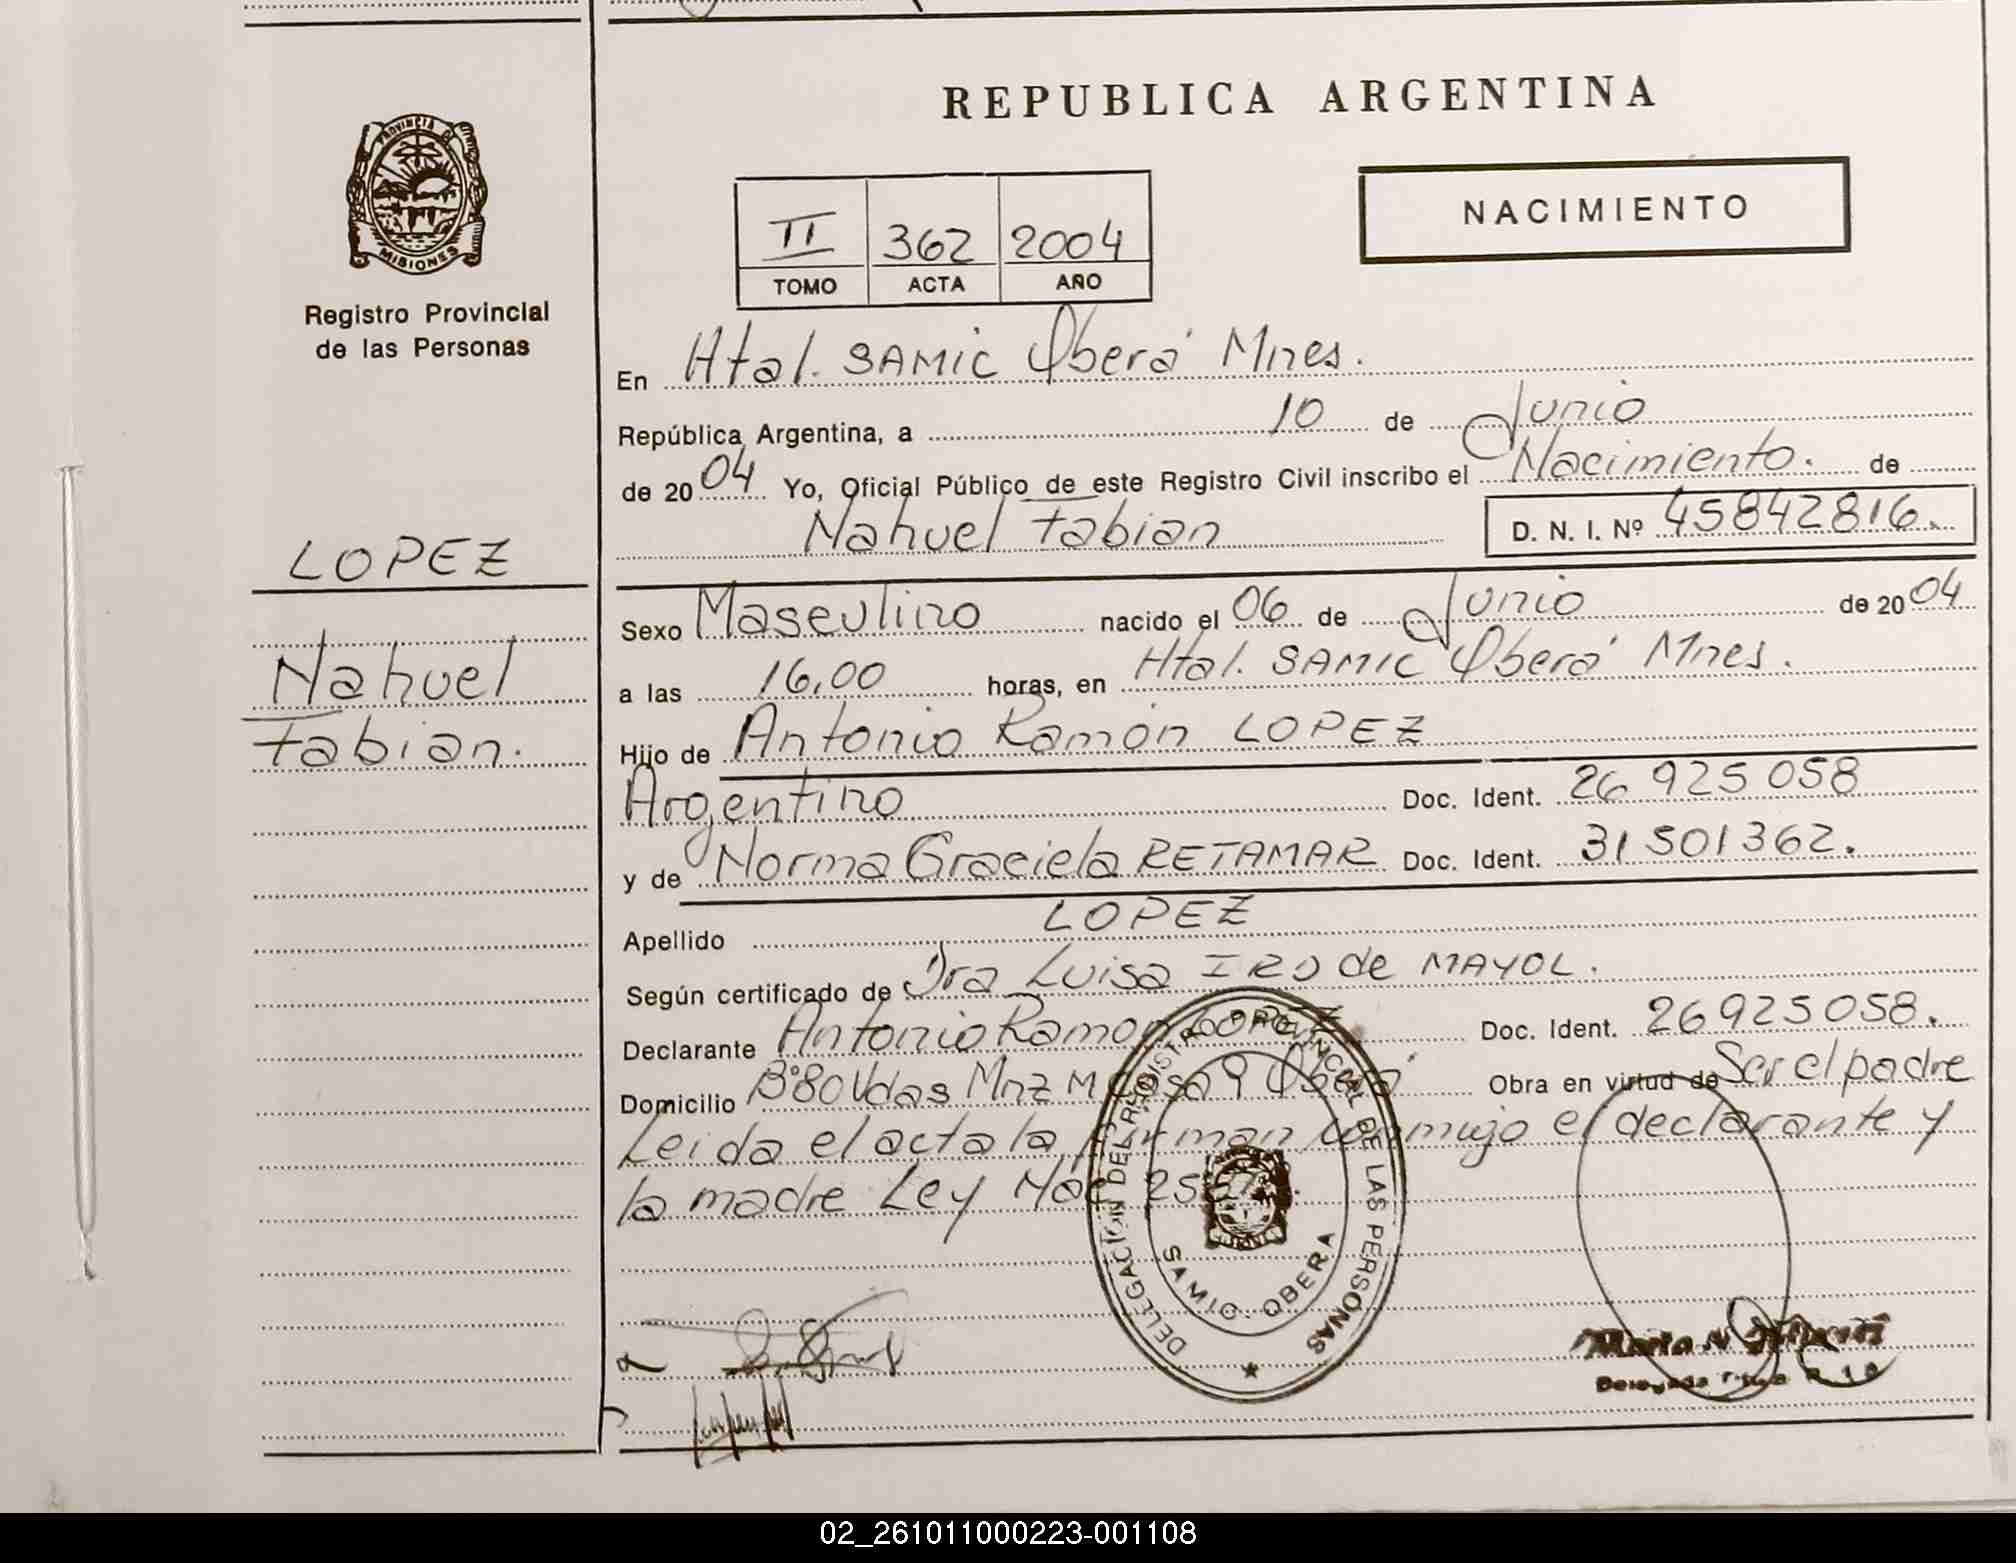 REPUBLICA ARGENTINA
PROVINCIA DE
MISIONES
Registro Provincial
de las Personas
LOPEZ
Nahuel
Fabian.
II 362 2004
TOMO ACTA AÑO
NACIMIENTO
En Htal. SAMIC Oberá Mnes.
República Argentina, a 10 de Junio
de 2004 Yo, Oficial Público de este Registro Civil inscribo el Nacimiento. de
Nahuel Fabian D. N. I. Nº 45842816.
Sexo Masculino nacido el 06 de Junio de 2004
a las 16,00 horas, en Htal. SAMIC Oberá Mnes.
Hijo de Antonio Ramón LOPEZ
Argentino Doc. Ident. 26 925 058
y de Norma Graciela RETAMAR Doc. Ident. 31 501362.
Apellido LOPEZ
Según certificado de Dra Luisa IRO de MAYOL.
Declarante Antonio Ramon LOPEZ Doc. Ident. 26925058.
Domicilio B°80 Vdas Mnz M Casa 9 Oberá Obra en virtud de Ser el padre
Leida el acta la firman conmigo el declarante y
la madre Ley
DELEGACION DEL REGISTRO PROVINCIAL DE LAS PERSONAS
SAMIC OBERA
Maria N
02_261011000223-001108